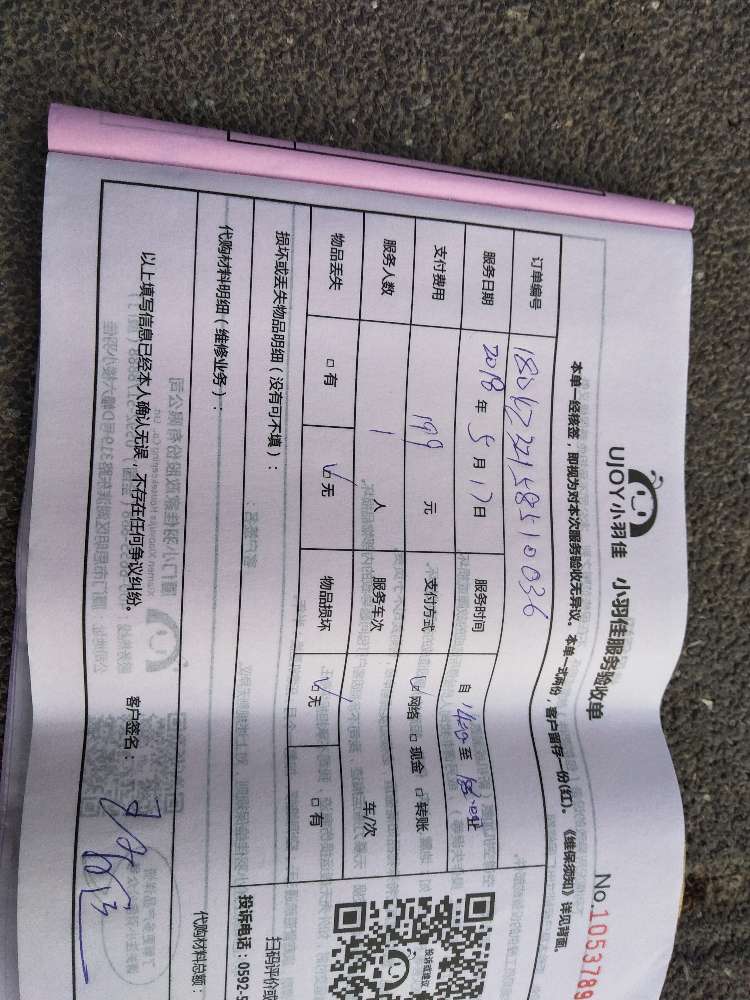 UJOY小羽佳 小羽佳服务验收单
No.1053789
本单一经核签,即视为对本次服务验收无异议。本单一式两份,客户留存一份(红)。《维保须知》详见背面。
订单编号
服务日期 2018 年 5 月 17 日 服务时间 自 14:00 至 18:00 止
支付费用 199 元 支付方式 ☑网络 □现金 □转账
服务人数 1 人 服务车次 车/次
物品丢失 □有 ☑无 物品损坏 ☑无 □有
损坏或丢失物品明细(没有可不填):
代购材料明细(维修业务):
代购材料总额:
以上填写信息已经本人确认无误,不存在任何争议纠纷。
客户签名:
投诉或建议
扫码评价或
投诉电话:0592-5